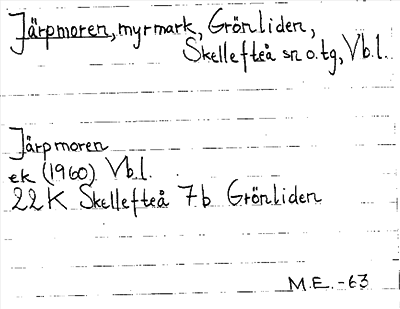 Järpmoren, myrmark, Grönliden,
Skellefteå sn o. tg, Vb.l.
Järpmoren
ek (1960) Vb.l.
22 K Skellefteå 7b Grönliden
M.E. -63